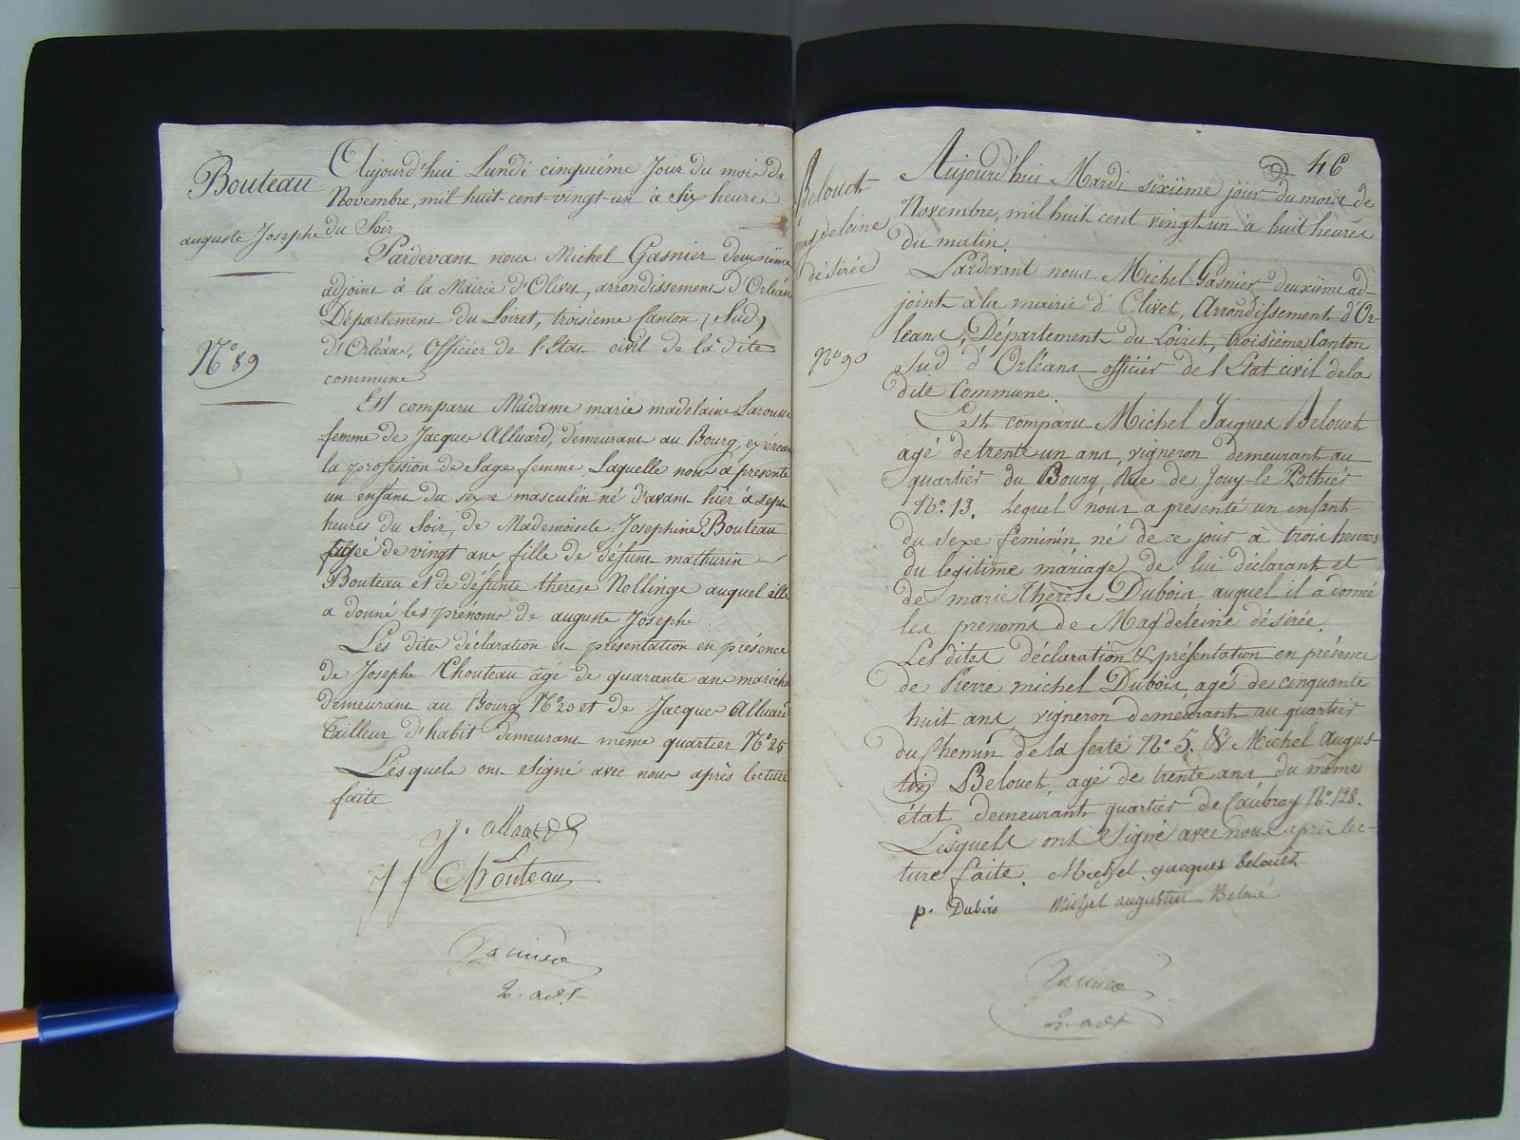 Bouteau
auguste Joseph
N° 89
Aujourd'hui Lundi cinquiéme Jour du mois de
Novembre, mil huit cent vingt-un à Six heures
du Soir
Pardevant nous Michel Gasnier deuxième
adjoint à la Mairie d'Olivet, arrondissement d'Orléans
Département du Loiret, troisième Canton (Sud)
d'Orléans, Officier de l'Etat civil de la dite
commune
Est comparu Madame marie madelaine
femme de Jacque Alluard, demeurant au Bourg, exércant
la profession de Sage femme Laquelle nous a présenté
un enfant du sexe masculin né d'avant hier à sept
heures du Soir, de Mademoisele Josephine Bouteau
agée de vingt ans fille de defunt mathurin
Bouteau et de défunte therese Nollinge auquel elle
a donné les prénoms de auguste Joseph
Les dites déclaration et présentation en présence
de Joseph Chouteau agé de quarante ans maréchal
demeurant au Bourg N° 20 et de Jacque Alluard
Tailleur d'habit demeurant même quartier N° 25
Lesquels ont signé avec nous après lecture
faite
J. alluard
Chouteau
Gasnier
2. adt
46
Belouet
magdeleine
désirée
N° 90
Aujourd'hui Mardi sixiime jour du mois de
Novembre, mil huit cent vingt un à huit heures
du matin.
Pardevant nous Michel Gasnier deuxiime ad-
joint à la mairie d'Olivet, Arrondissement d'Or-
leans, Département du Loiret, troisiéme Canton
Sud d'Orléans officier de l'Etat civil de la
dite Commune.
Est comparu Michel Jacques Belouet
agé de trente un ans, vigneron demeurant au
quartier du Bourg, Rue de Jouy-le-Pothier
N° 13. Lequel nous a présenté un enfant
du Sexe féminin né de ce jour à trois heures
du legitime mariage de lui déclarant et
de marie Thérèse Dubois auquel il a donné
les prenoms de Magdeleine désirée.
Les dites déclaration & présentation en présence
de Pierre michel Dubois, agé de cinquante
huit ans, vigneron demeurant au quartier
du Chemin de la ferté N° 5. & Michel Augus-
tin Belouet, agé de trente ans, du même
état demeurant quartier de Caubray N° 128.
Lesquels ont signé avec nous après lec-
ture faite. Michel jacques belouet
p. Dubois Michel augustin Beloué
Gasnier
2. adt